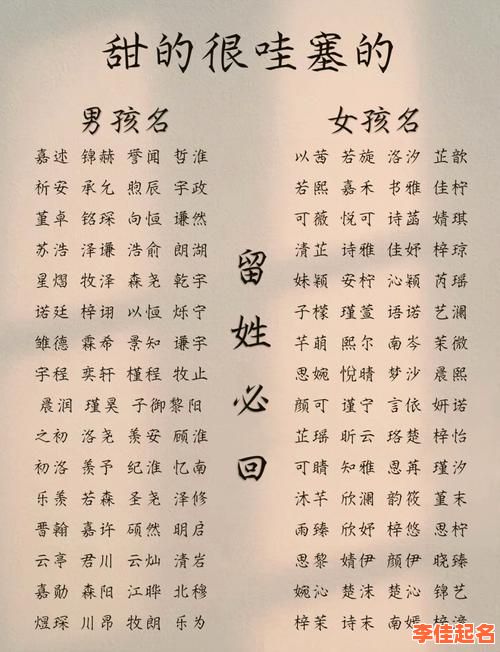 甜的很哇塞的
男孩名
嘉述 锦赫 誉闻 哲淮
祈安 承允 煦辰 宇政
堇卓 铭琛 向恒 谦然
苏浩 泽谦 浩俞 朗湖
星熠 牧泽 森尧 乾宇
诺廷 梓诩 以恒 烁宁
雏德 霖希 景知 谦宇
宇程 奕轩 槿程 牧止
晨润 瑾昊 子御黎阳
之初 洛尧 羡安 顾淮
初洛 羡予 纪淮 忆南
乐羡 若森 圣尧 泽修
晋翰 嘉许 硕然 明启
云亭 君川 云灿 清岩
嘉勋 森阳 江晔 北穆
煜琛 川昂 牧朗 乐为
留姓必回
女孩名
以茜 若旋 洛汐 芷歆
若熙 嘉禾 书雅 佳柠
可薇 悦可 诗菡 婧琪
清芷 诗雅 佳妤 梓琼
妹颖 安柠 沁颖 芮瑶
子檬 瑾萱 语诺 艺澜
芊萌 熙尔 南岑 茉微
思婉 悦晴 梦沙 晨熙
颜可 谨宁 言依 妍诺
芷瑶 昕云 珞楚 梓怡
可晴 知雅 思苒 瑾汐
沐芊 欣澜 韵筱 堇末
雨臻 欣妤 梓悠 思柠
思黎 婧伊 颜伊 晓臻
婉沁 楚沫 楚沁 锦艺
梓茉 诗末 南嫣 梓潼
李佳起名